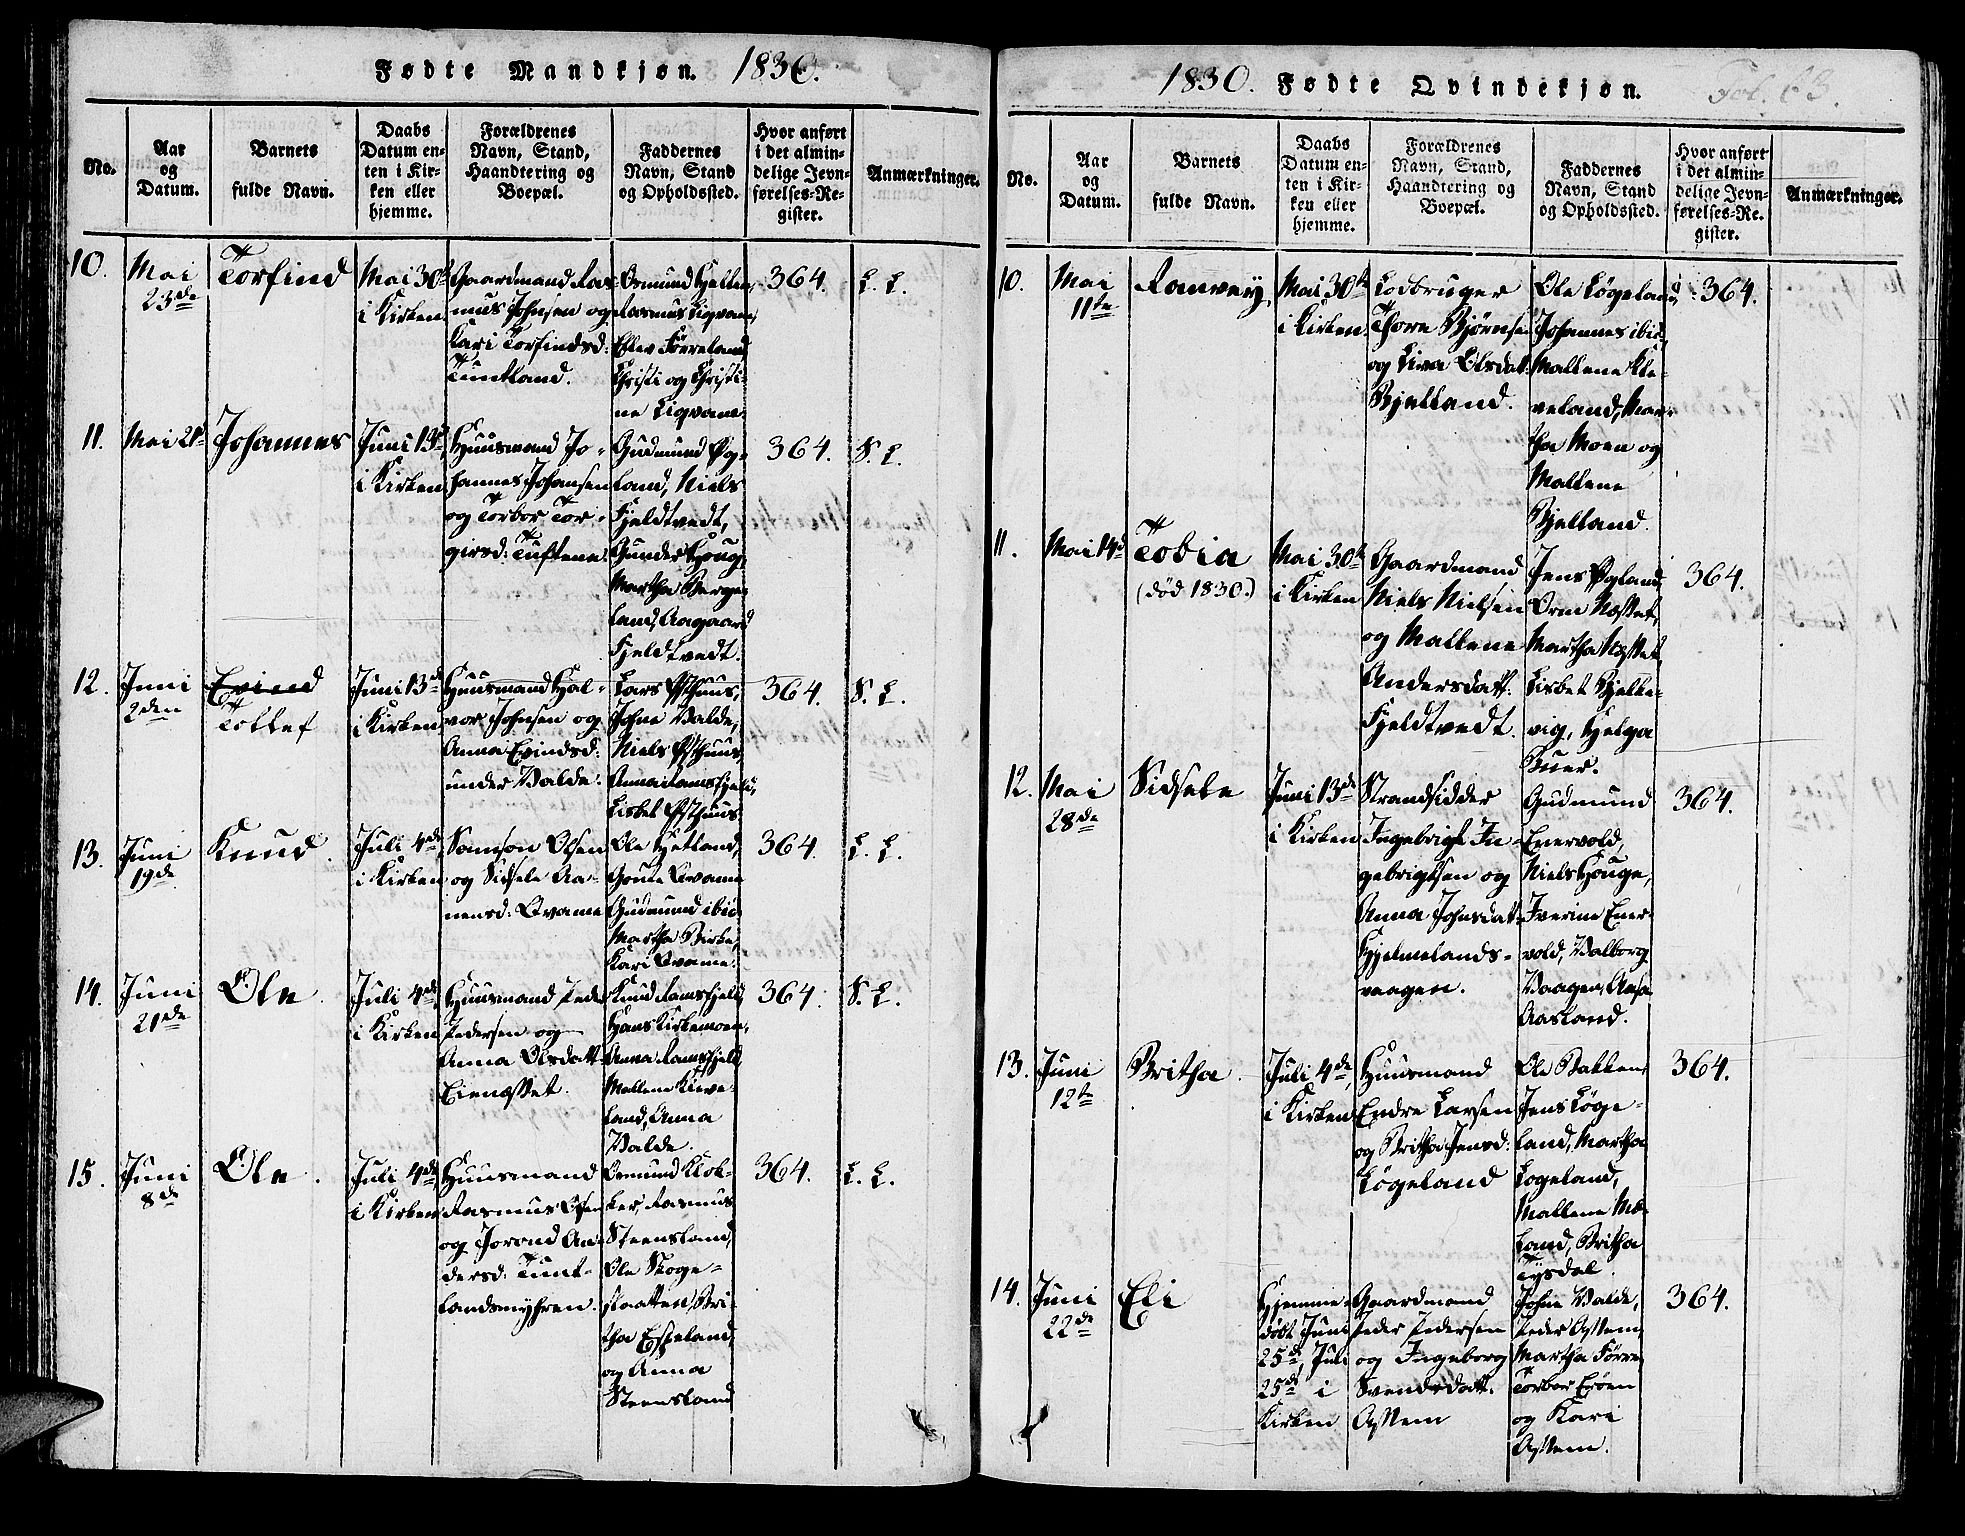 Fødte Mandkjøn. 1830.
No.
Aar
og
Datum.
Barnets
fulde Navn.
Daabs
Datum en-
ten i Kir-
ken eller
hjemme.
Forældrenes
Navn, Stand,
Haandtering og
Boepæl.
Faddernes
Navn, Stand
og Opholdssted.
Hvor anført
i det almin-
delige Jevn-
førelses-Re-
gister.
Anmærkninger.
10.
Mai
23de
Torfind
Mai 30te
i Kirken
Gaardmand Ras-
mus Johnsen og
Kari Torfindsd:
Tuntland.
Osmund Hjelten,
Rasmus Ligvam,
Elev Førreland,
Christi og Christi-
ne Ligvam.
364.
L. L.
11.
Mai 21
Johannes
Juni 13de
i Kirken
Huusmand Jo-
hannes Johansen
og Torbor Tor-
girsd: Tuftene.
Gudmund Øg-
land, Niels
Fjeldtvedt,
Gunder Houg,
Martha Berge-
land, Aagaard
Fjeldtvedt.
364.
S. L.
12.
Juni
2den
Evind
Tollef
Juni 13de
i Kirken
Huusmand Hal-
vor Johnsen og
Anna Evindsd:
under Valde.
Lars Østhuus,
Johne Valde,
Niels Østhuus
Anna Ramsfjeld,
Lisbet Østhuus.
364.
S. L.
13.
Juni
19de
Knud.
Juli 4de
i Kirken
Samson Olsen
og Sidsele Aa-
nensd: Qvame
Ole Hetland,
Goute Qvame
Gudmund ibid
Martha Birke,
Kari Qvame.
364.
L. L.
14.
Juni
21de
Ole.
Juli 4de
i Kirken
Huusmand Peder
Pedersen og
Anna Olsdatt.
Eienæsset.
Knud Ramsfjeld,
Hans Kirkemoen,
Anna Ramsfjeld
Mallene Kleve-
land, Anna
Valde.
364.
S. L.
15.
Juni
8de
Ole.
Juli 4de
i Kirken
Huusmand
Rasmus Olsen
og Jorond An-
dersd: Tunt-
landsmyhren.
Osmund Klok-
ker, Rasmus
Steensland,
Ole Skoge-
staatten, Bri-
tha Espeland,
og Anna
Steensland
364.
L. L.
1830. Fødte Qvindekjøn.
Fol. 63.
No.
Aar
og
Datum.
Barnets
fulde Navn.
Daabs
Datum en-
ten i Kir-
ken eller
hjemme.
Forældrenes
Navn, Stand,
Haandtering og
Boepæl.
Faddernes
Navn, Stand
og Opholdssted.
Hvor anført
i det almin-
delige Jevn-
førelses-Re-
gister.
Anmærkninger.
10.
Mai
11te
Ranvey,
Mai 30te
i Kirken.
Lodbruger
Thore Bjørnsen
og Liva Olsdat:
Bjelland.
Ole Løgeland,
Johannes ibid,
Mallene Kle-
veland, Mar-
tha Moen og
Mallene
Bjelland.
364.
11.
Mai 14de
Tobia
(død 1830.)
Mai 30te
i Kirken
Gaardmand
Niels Nielsen
og Mallene
Andersdatt.
Fjeldtvedt.
Jens Øgland,
Orm Næsset,
Martha Næsset,
Lisbet Hjelte-
vig, Helga
Buer.
364.
12.
Mai
28de
Sidsele
Juni 13de
i Kirken
Strandsidder
Ingebrigt In-
gebrigtsen og
Anna Johnsdatt.
Hjelmelands-
vaagen.
Gudmund
Enervold,
Niels Houge,
Iverine Ener-
vold, Valborg
Vaagen, Ansa
Aasland.
364.
13.
Juni
12te
Britha.
Juli 4de
i Kirken
Huusmand
Endre Larsen
og Britha Jensd:
Løgeland
Ole Bakken,
Jens Løge-
land, Martha
Løgeland,
Mallene Mæ-
land, Britha
Tysdal.
364.
14.
Juni
22de
Eli
Hjemme-
døbt Juni
25de, Juli
25de i
Kirken
Gaardmand
Peder Pedersen
og Ingeborg
Svendsdatt.
Assem
Johne Valde,
Peder Assem,
Martha Førre
Torbor Eröen
og Kari
Assem.
364.